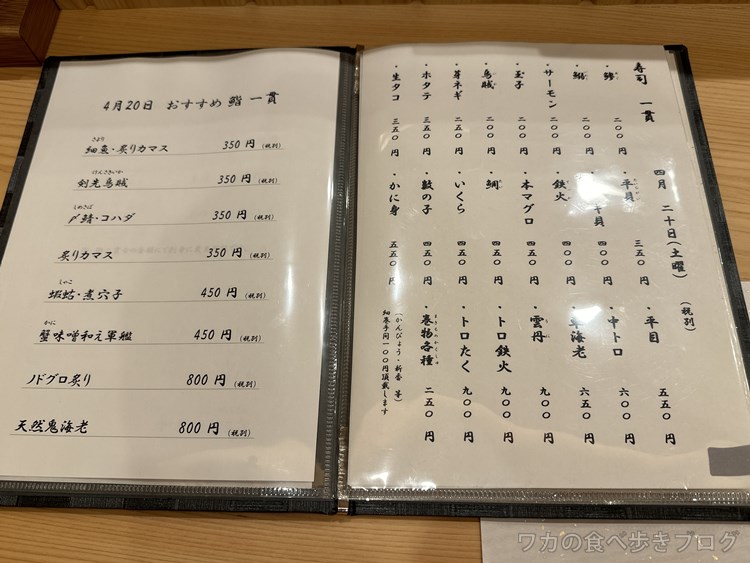 4月20日 おすすめ 鮨 一貫
さより
細魚・炙りカマス 350円(税別)
けんさきいか
剣先烏賊 350円(税別)
しめさば
〆鯖・コハダ 350円(税別)
炙りカマス 350円(税別)
しゃこ
蝦蛄・煮穴子 450円(税別)
かに
蟹味噌和え軍艦 450円(税別)
ノドグロ炙り 800円(税別)
天然鬼海老 800円(税別)
寿司 一貫 四月 二十日(土曜) (税別)
・鯵 二〇〇円
・平貝 三五〇円
・平目 五五〇円
・鰯 二〇〇円
貝 四〇〇円
・中トロ 六〇〇円
・サーモン 二〇〇円
・鉄火 四〇〇円
・車海老 六五〇円
・玉子 二〇〇円
・本マグロ 四五〇円
・雲丹 九〇〇円
・烏賊 二〇〇円
・鯛 四五〇円
・トロ鉄火 九〇〇円
・芽ネギ 二五〇円
・いくら 四五〇円
・トロたく 九〇〇円
・ホタテ 三五〇円
・数の子 四五〇円
・巻物各種 二五〇円
・生タコ 三五〇円
・かに身 五五〇円
(かんぴょう・新香 等)
細巻手間一〇〇円頂戴します
ワカの食べ歩きブログ